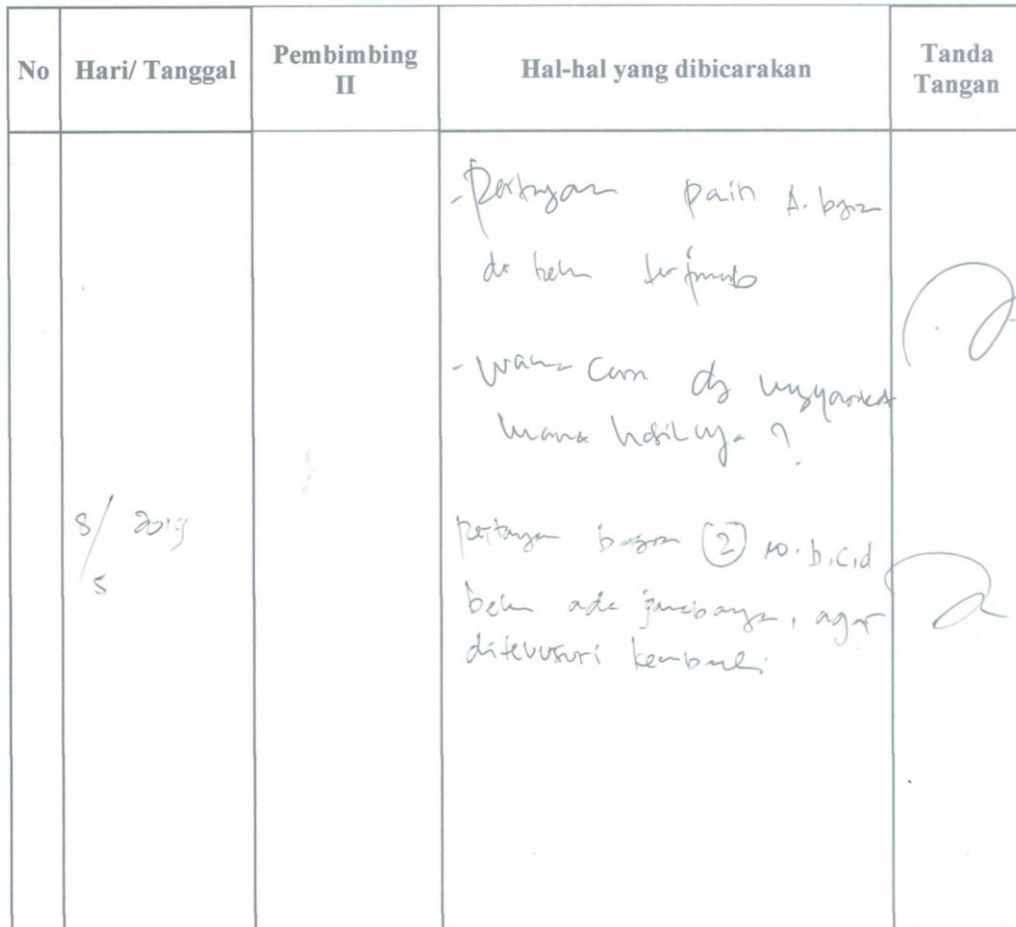 No Hari/ Tanggal Pembimbing II Hal-hal yang dibicarakan Tanda Tangan
- Pertanyaan poin A.
belum terjawab
- Wawancara dg masyarakat
mana hasilnya ?
8/5 2019
pertanyaan bagian (2) no. b, c, d
belum ada jawabanya, agar
ditelusuri kembali